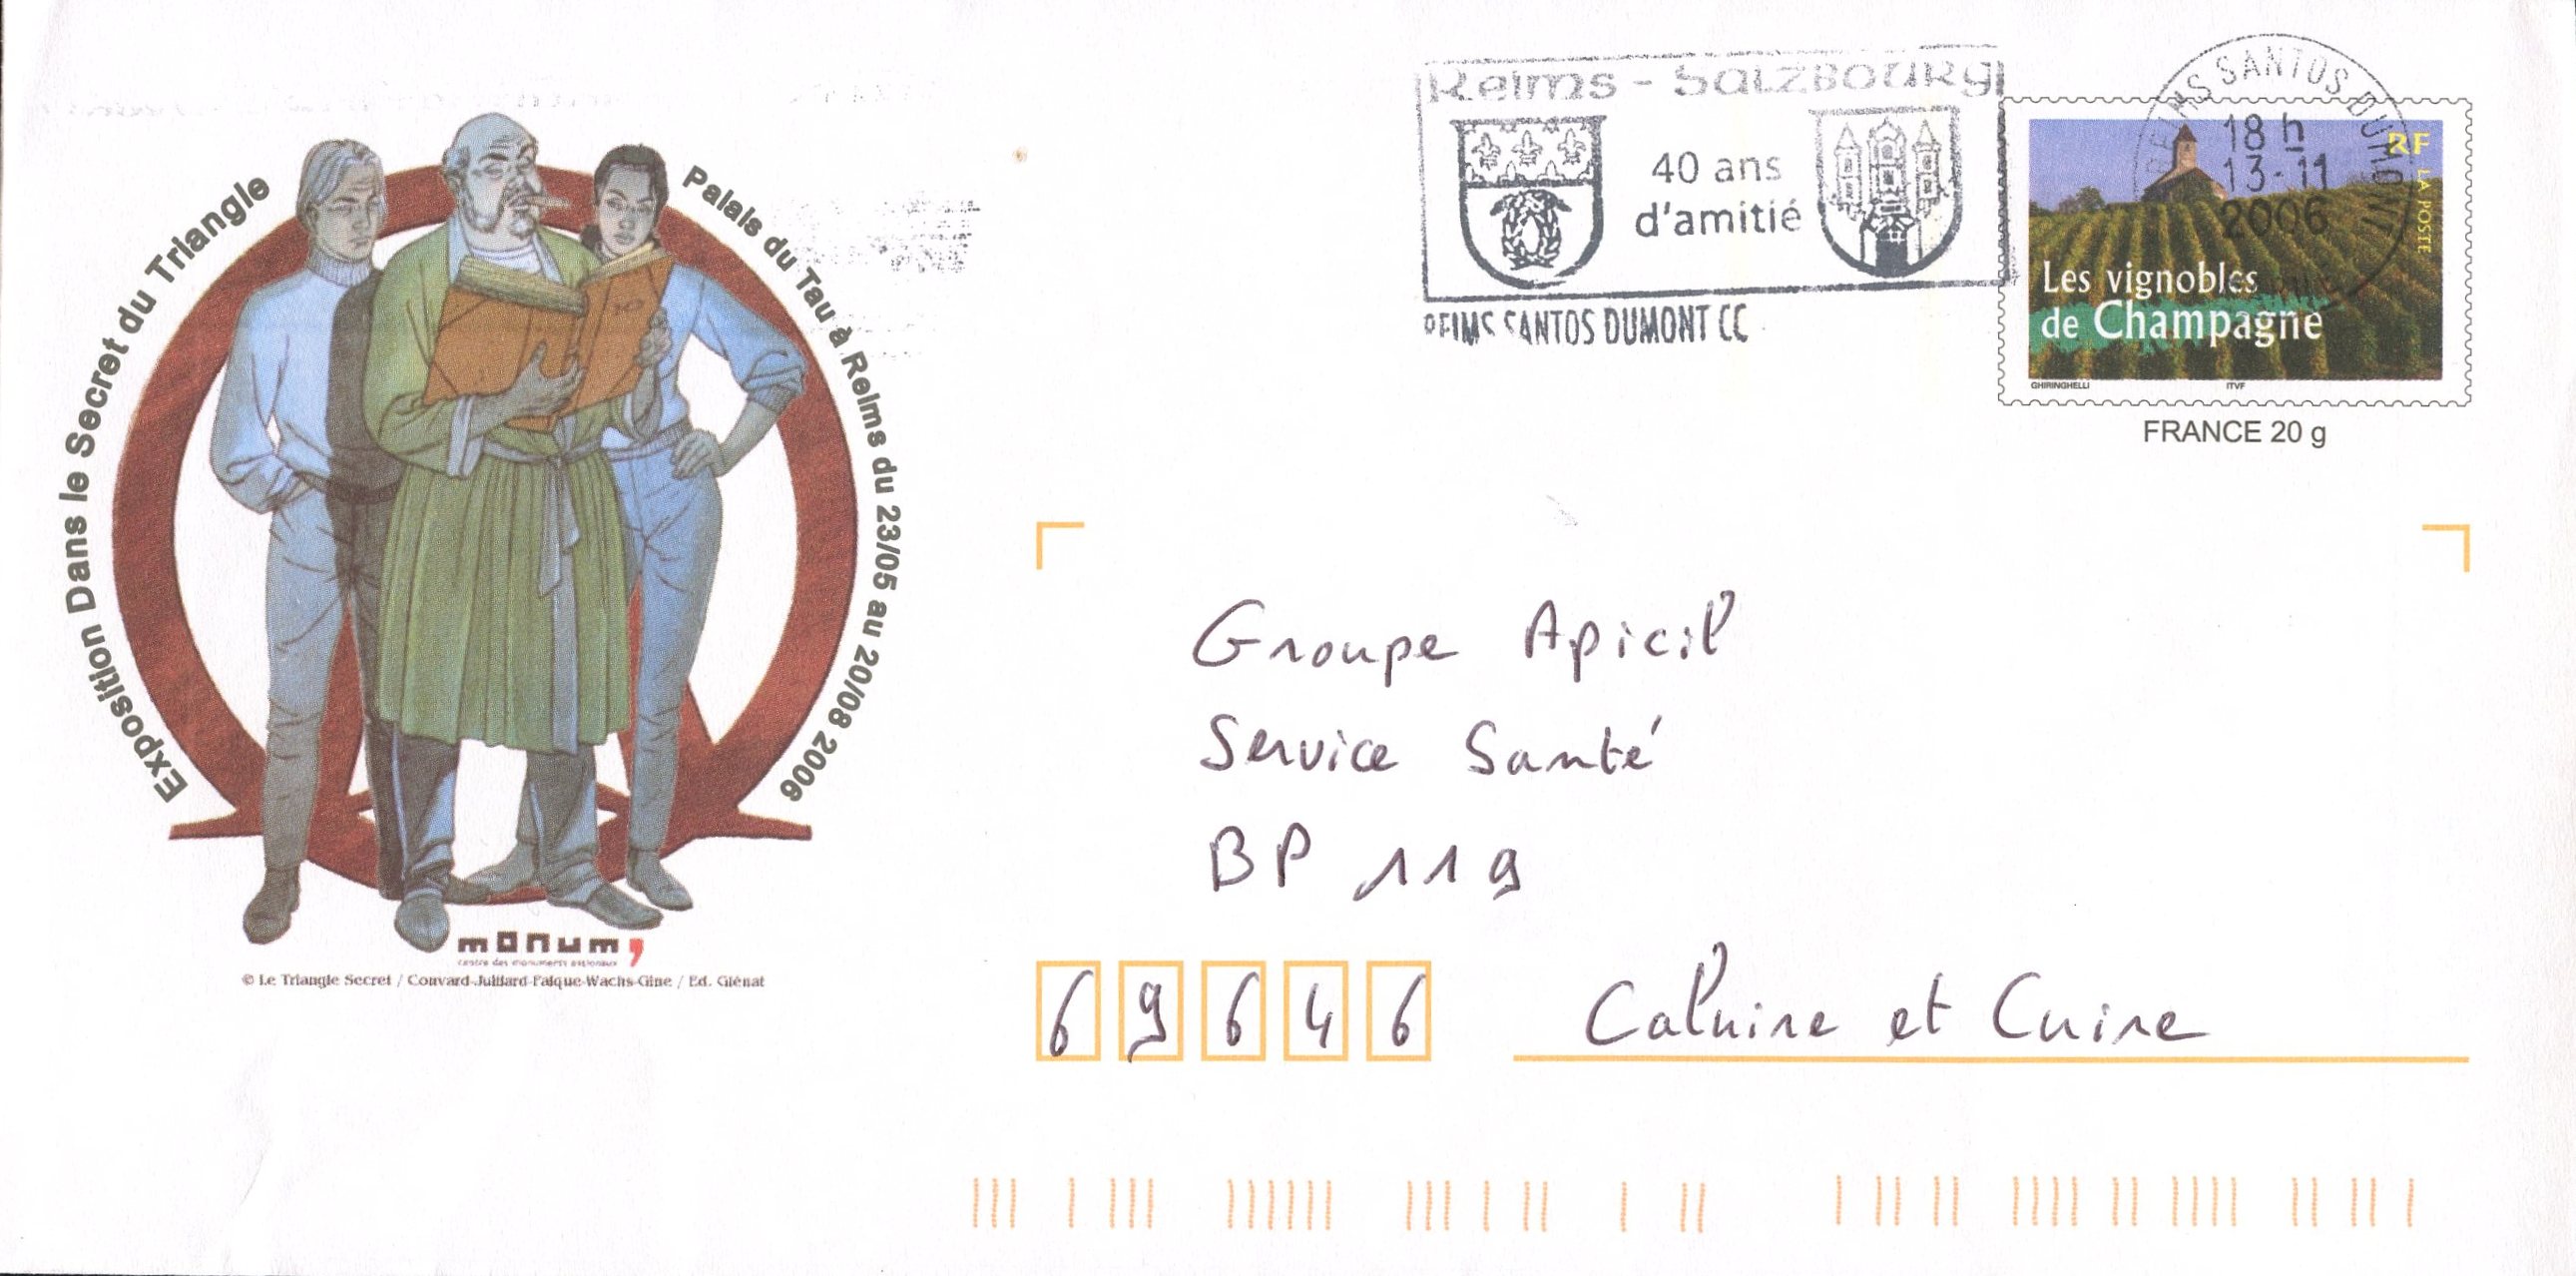 Exposition Dans le Secret du Triangle
Palais du Tau à Reims du 23/05 au 20/08 2006
monum,
centre des monuments nationaux
© Le Triangle Secret / Convard-Juillard-Falque-Wachs-Gine / Ed. Glénat
Reims - Salzbourg
40 ans
d'amitié
REIMS SANTOS DUMONT CC
REIMS SANTOS DUMONT
18 h
13-11
2006
RF
LA POSTE
Les vignobles
de Champagne
GHIRINGHELLI ITVF
FRANCE 20 g
Groupe Apicil
Service Santé
BP 119
69646 Caluire et Cuire